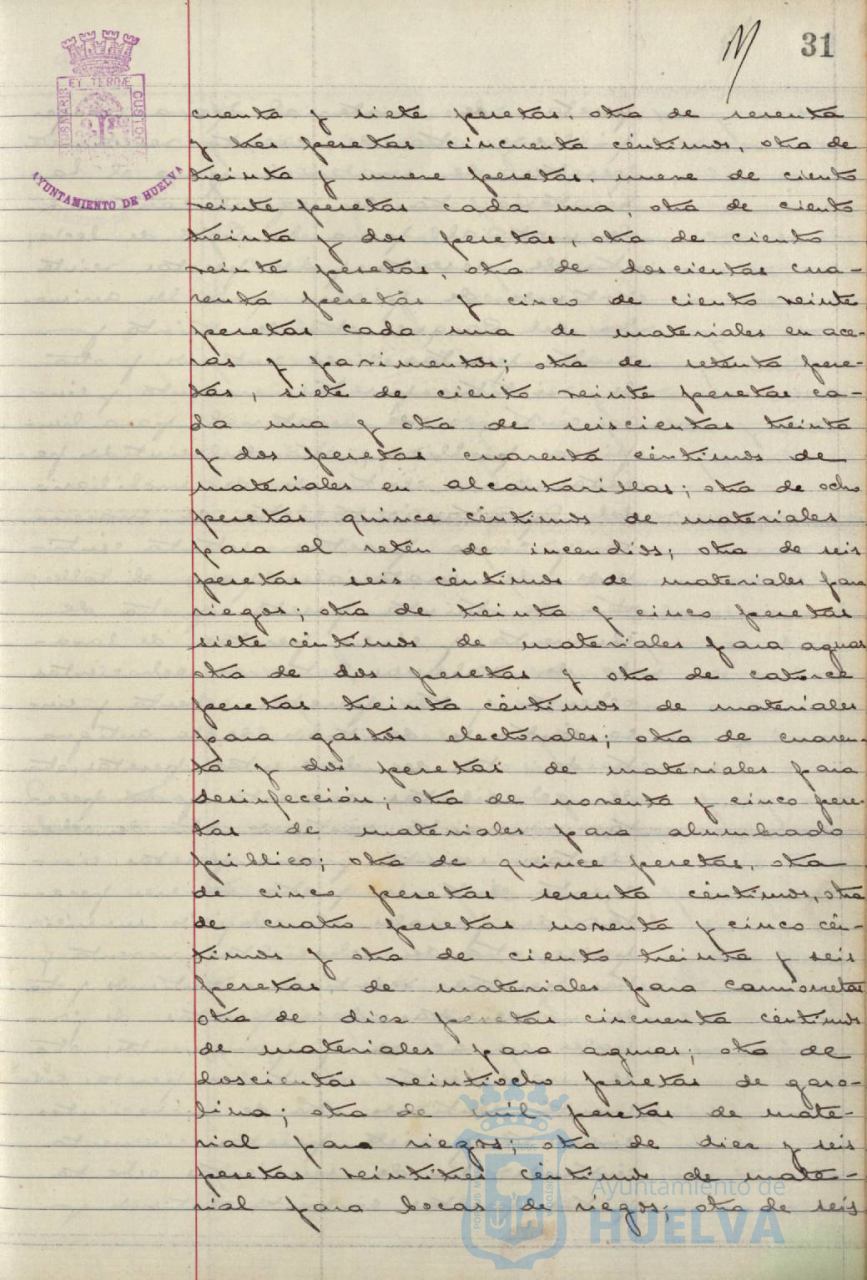 31
ET TERRÆ
CUSTODI
AYUNTAMIENTO DE HUELVA
cuenta y siete pesetas, otra de sesenta
y tres pesetas cincuenta céntimos, otra de
treinta y nueve pesetas, nueve de ciento
veinte pesetas cada una, otra de ciento
treinta y dos pesetas, otra de ciento
veinte pesetas, otra de doscientas cua-
renta pesetas y cinco de ciento veinte
pesetas cada una de materiales en ace-
ras y pavimentos; otra de setenta pese-
tas, siete de ciento veinte pesetas ca-
da una y otra de seiscientas treinta
y dos pesetas cuarenta céntimos de
materiales en alcantarillas; otra de ocho
pesetas quince céntimos de materiales
para el retén de incendios; otra de seis
pesetas seis céntimos de materiales para
riegos; otra de treinta y cinco pesetas
siete céntimos de materiales para aguas
otra de dos pesetas y otra de catorce
pesetas treinta céntimos de materiales
para gastos electorales; otra de cuaren-
ta y dos pesetas de materiales para
desinfección; otra de noventa y cinco pese-
tas de materiales para alumbrado
público; otra de quince pesetas, otra
de cinco pesetas sesenta céntimos, otra
de cuatro pesetas noventa y cinco cén-
timos y otra de ciento treinta y seis
pesetas de materiales para camionetas
otra de diez pesetas cincuenta céntimos
de materiales para aguas; otra de
doscientas veintiocho pesetas de gaso-
lina; otra de mil pesetas de mate-
rial para riegos; otra de diez y seis
pesetas veintitres céntimos de mate-
rial para bocas de riegos; otra de seis
Ayuntamiento de
HUELVA